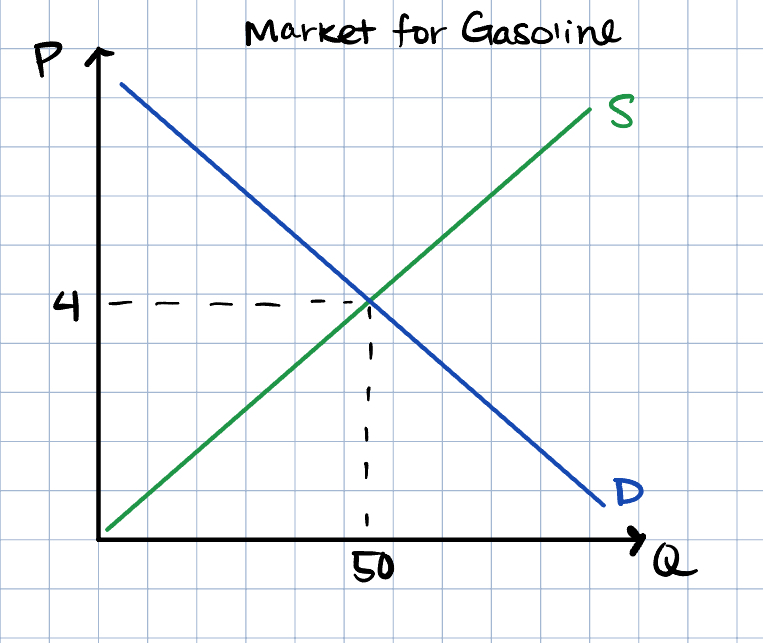 Market for Gasoline
P
S
4
D
50
Q